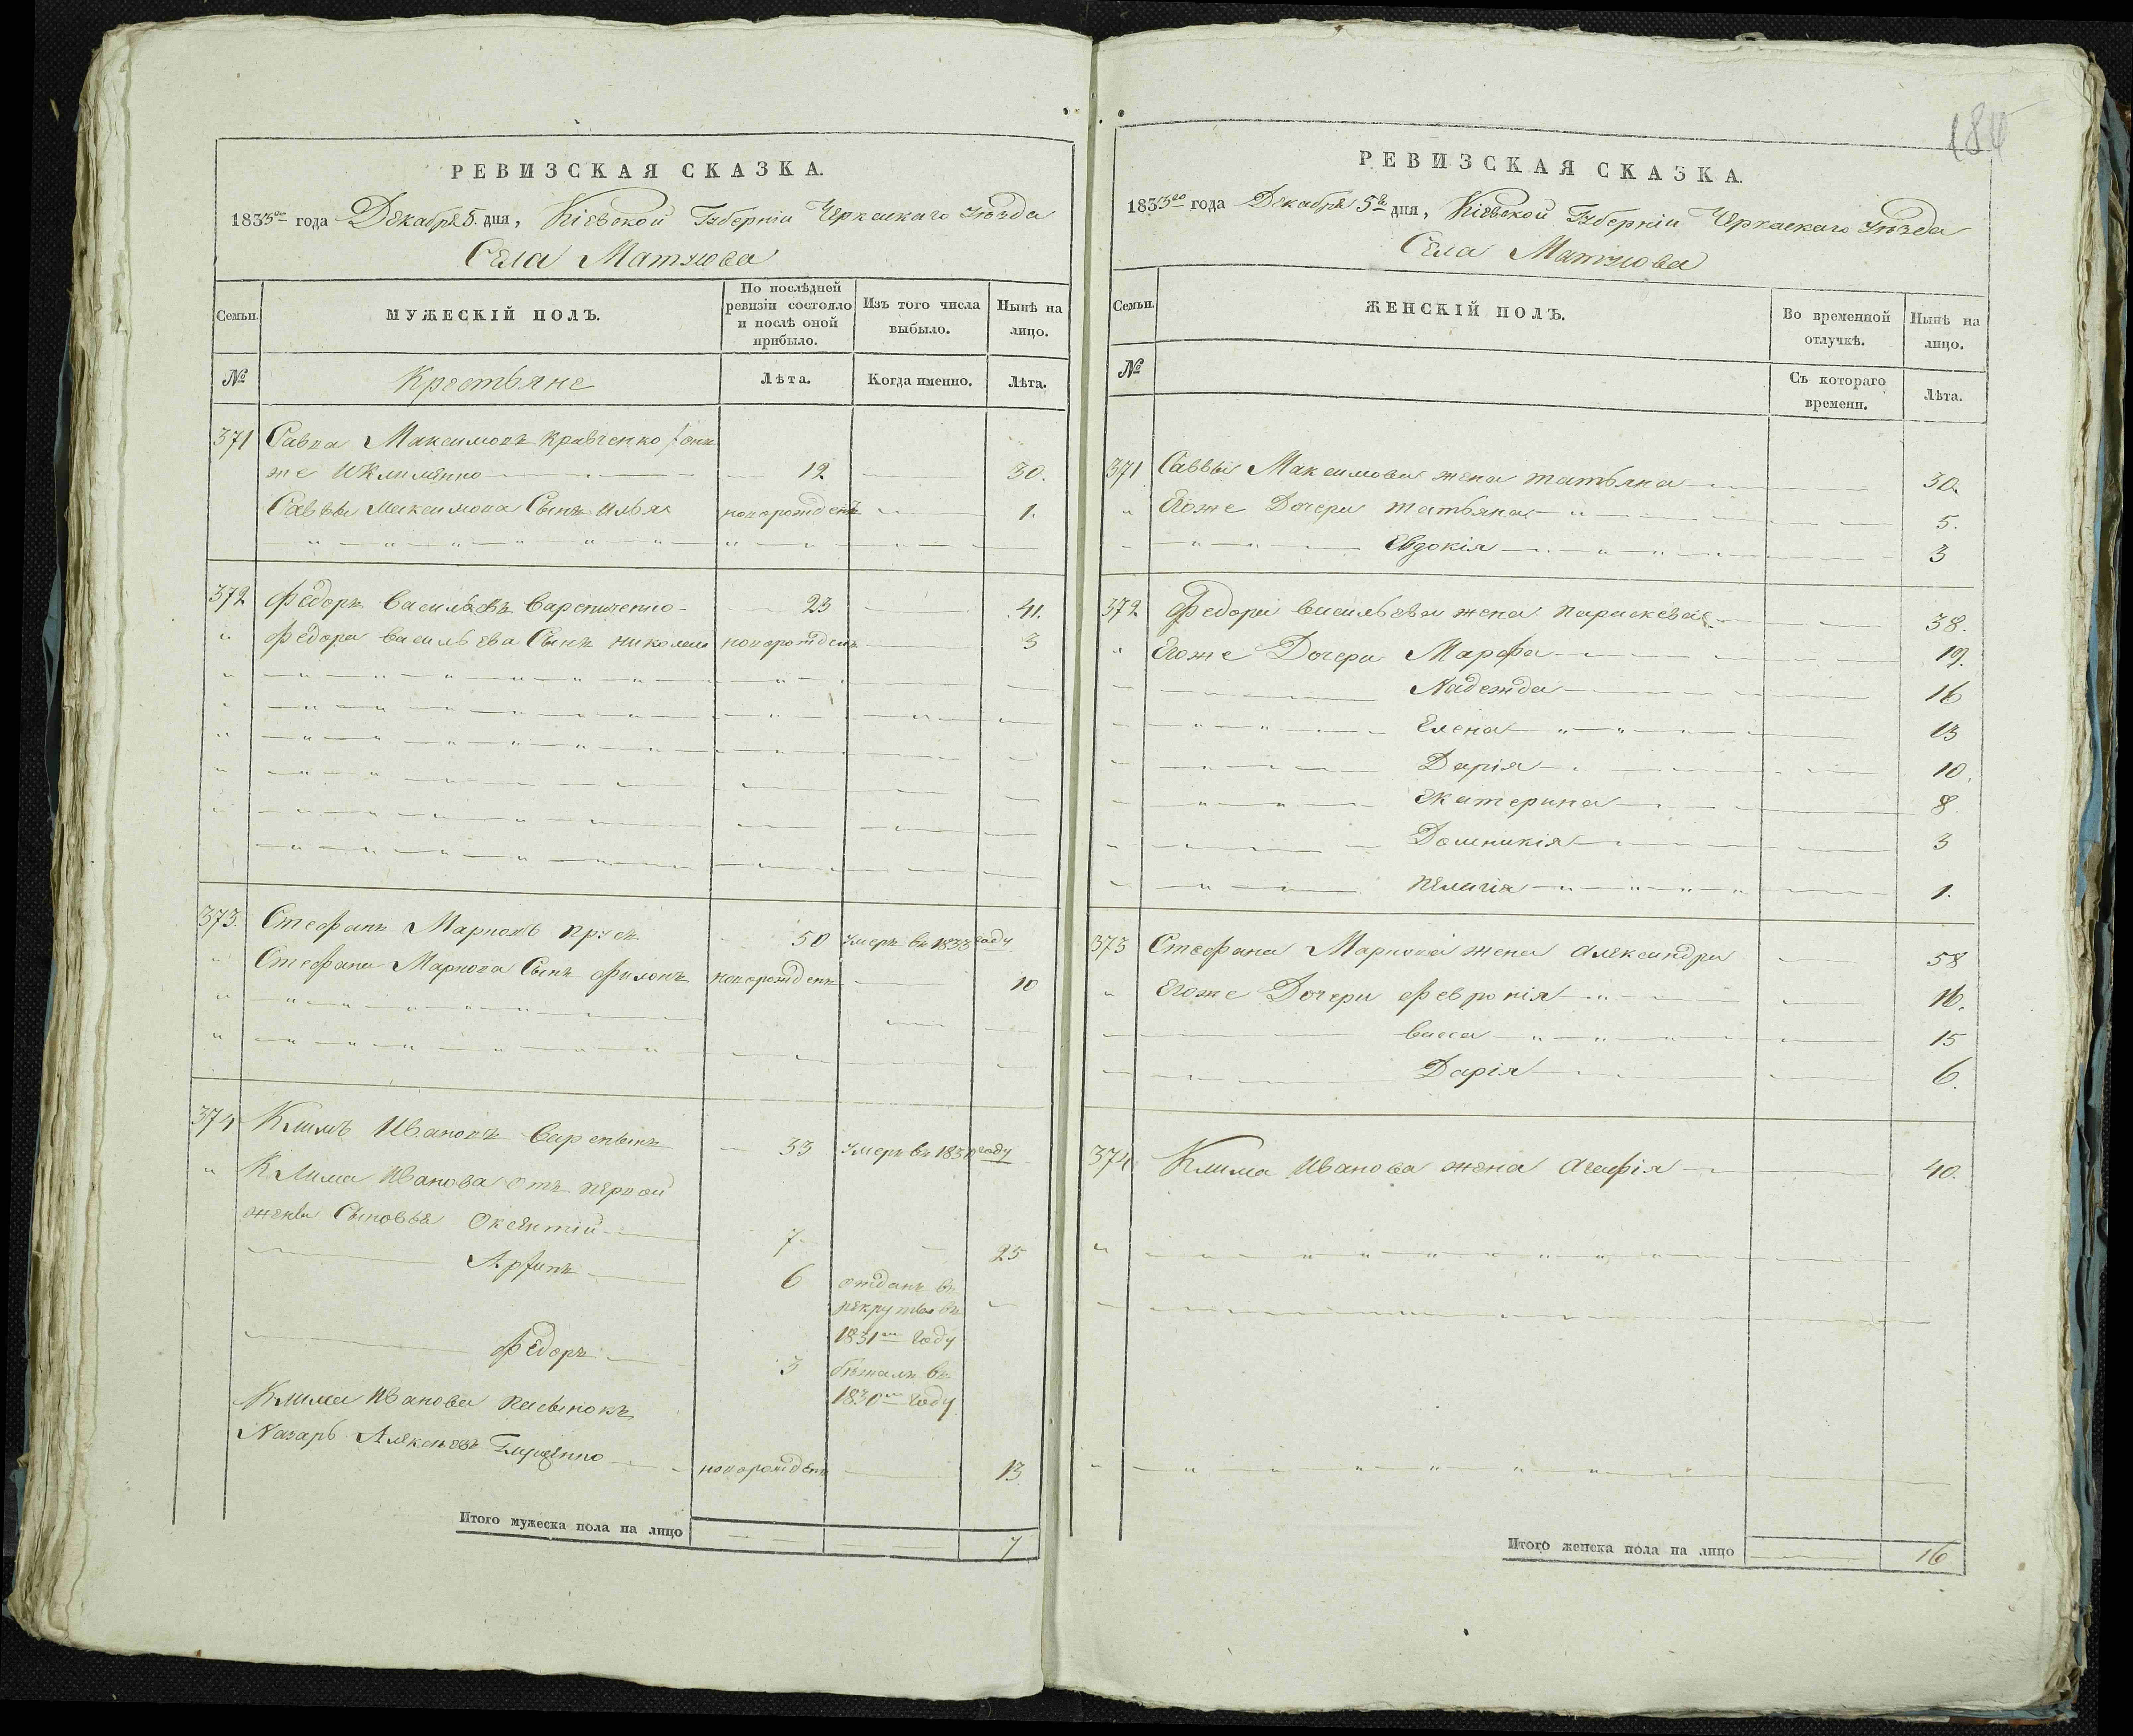 РЕВИЗСКАЯ СКАЗКА.
1833го года Декабря 5. дня, Кіевской Губерніи Черкаскаго Уѣзда
Села Матусова
Семьи.
МУЖЕСКІЙ ПОЛЪ.
По послѣдней ревизіи состояло и послѣ оной прибыло.
Изъ того числа выбыло.
Нынѣ на лицо.
№
Крестьяне
Лѣта.
Когда именно.
Лѣта.
371 Савва Максимовъ Кравченко онъ
же и Клименко 12 30.
Саввы Максимова Сынъ Илья новорожденъ 1.
372 Федоръ Васильевъ 23 41.
Федора Васильева Сынъ Николай новорожденъ 3
373. Стефанъ Марковъ Прусъ 50 умеръ въ 1833 году
Стефана Маркова Сынъ Филонъ новорожденъ 10
374 Климъ Ивановъ 33 умеръ въ 1830 году
Клима Иванова отъ первой
жены Сыновья Оксентій 7. 25
6 отданъ въ
рекруты въ
1831м году
Федоръ 3 бѣжалъ въ
1830м году
Клима Иванова пасынокъ
Назаръ новорожденъ 13
Итого мужеска пола на лицо 7
184
РЕВИЗСКАЯ СКАЗКА.
1833го года Декабря 5го дня, Кіевской Губерніи Черкаскаго Уѣзда
Села Матусова
Семьи.
ЖЕНСКІЙ ПОЛЪ.
Во временной отлучкѣ.
Нынѣ на лицо.
№
Съ котораго времени.
Лѣта.
371 Саввы Максимова жена Татьяна 30.
Егоже Дочери Татьяна 5.
Евдокія 3
372 Федора Васильева жена Параскева 38.
Егоже Дочери Марфа 19.
Надежда 16
Елена 13
Дарія 10.
Екатерина 8.
Домникія 3
Пелагія 1.
373 Стефана Маркова жена Александра 58
Егоже Дочери Февронія 16.
Васса 15
Дарія 6.
374 Клима Иванова жена Агафія 40.
Итого женска пола на лицо 16